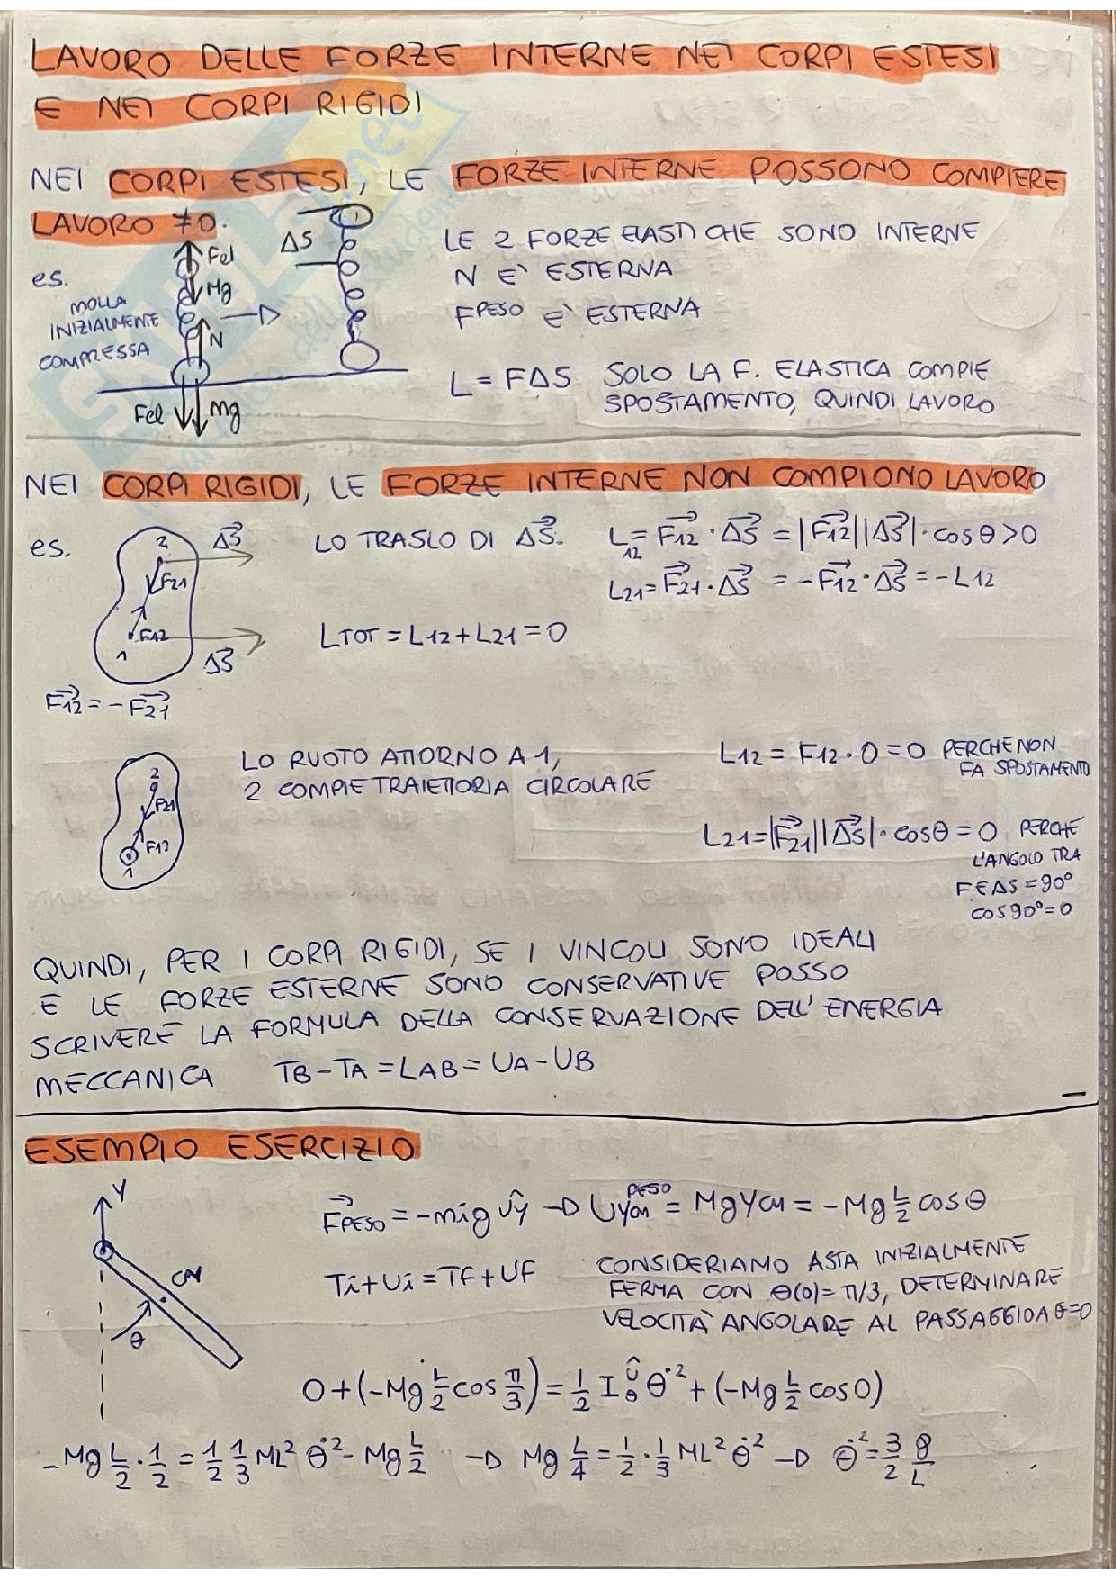 LAVORO DELLE FORZE INTERNE NEI CORPI ESTESI
E NEI CORPI RIGIDI
NEI CORPI ESTESI, LE FORZE INTERNE POSSONO COMPIERE
LAVORO ≠0.
es.
MOLLA
INIZIALMENTE
COMPRESSA
Fel
Mg
N
Fel
Mg
ΔS
LE 2 FORZE ELASTICHE SONO INTERNE
N E' ESTERNA
FPESO E' ESTERNA
L = FΔS SOLO LA F. ELASTICA COMPIE
SPOSTAMENTO, QUINDI LAVORO
NEI CORPI RIGIDI, LE FORZE INTERNE NON COMPIONO LAVORO
es.
2
ΔS
F21
F12
1
ΔS
F12 = -F21
LO TRASLO DI ΔS.
L12 = F12 · ΔS = |F12||ΔS| · cosθ>0
L21 = F21 · ΔS = -F12 · ΔS = -L12
LTOT = L12 + L21 = 0
2
F21
F12
1
LO RUOTO ATTORNO A 1,
2 COMPIE TRAIETTORIA CIRCOLARE
L12 = F12 · 0 = 0 PERCHE NON
FA SPOSTAMENTO
L21 = |F21||ΔS| · cosθ = 0 PERCHE
L'ANGOLO TRA
F E ΔS = 90°
COS90° = 0
QUINDI, PER I CORPI RIGIDI, SE I VINCOLI SONO IDEALI
E LE FORZE ESTERNE SONO CONSERVATIVE POSSO
SCRIVERE LA FORMULA DELLA CONSERVAZIONE DELL'ENERGIA
MECCANICA TB - TA = LAB = UA - UB
ESEMPIO ESERCIZIO
Y
CM
θ
FPESO = -mig ûy → Uycm^PESO = MgYCM = -Mg L/2 cosθ
Ti + Ui = TF + UF
CONSIDERIAMO ASTA INIZIALMENTE
FERMA CON θ(0) = π/3, DETERMINARE
VELOCITÀ ANGOLARE AL PASSAGGIO A θ=0
0 + (-Mg L/2 cos π/3) = 1/2 I θ̇² + (-Mg L/2 cos0)
-Mg L/2 · 1/2 = 1/2 1/3 ML² θ̇² - Mg L/2 → Mg L/4 = 1/2 · 1/3 ML² θ̇² → θ̇² = 3/2 g/L